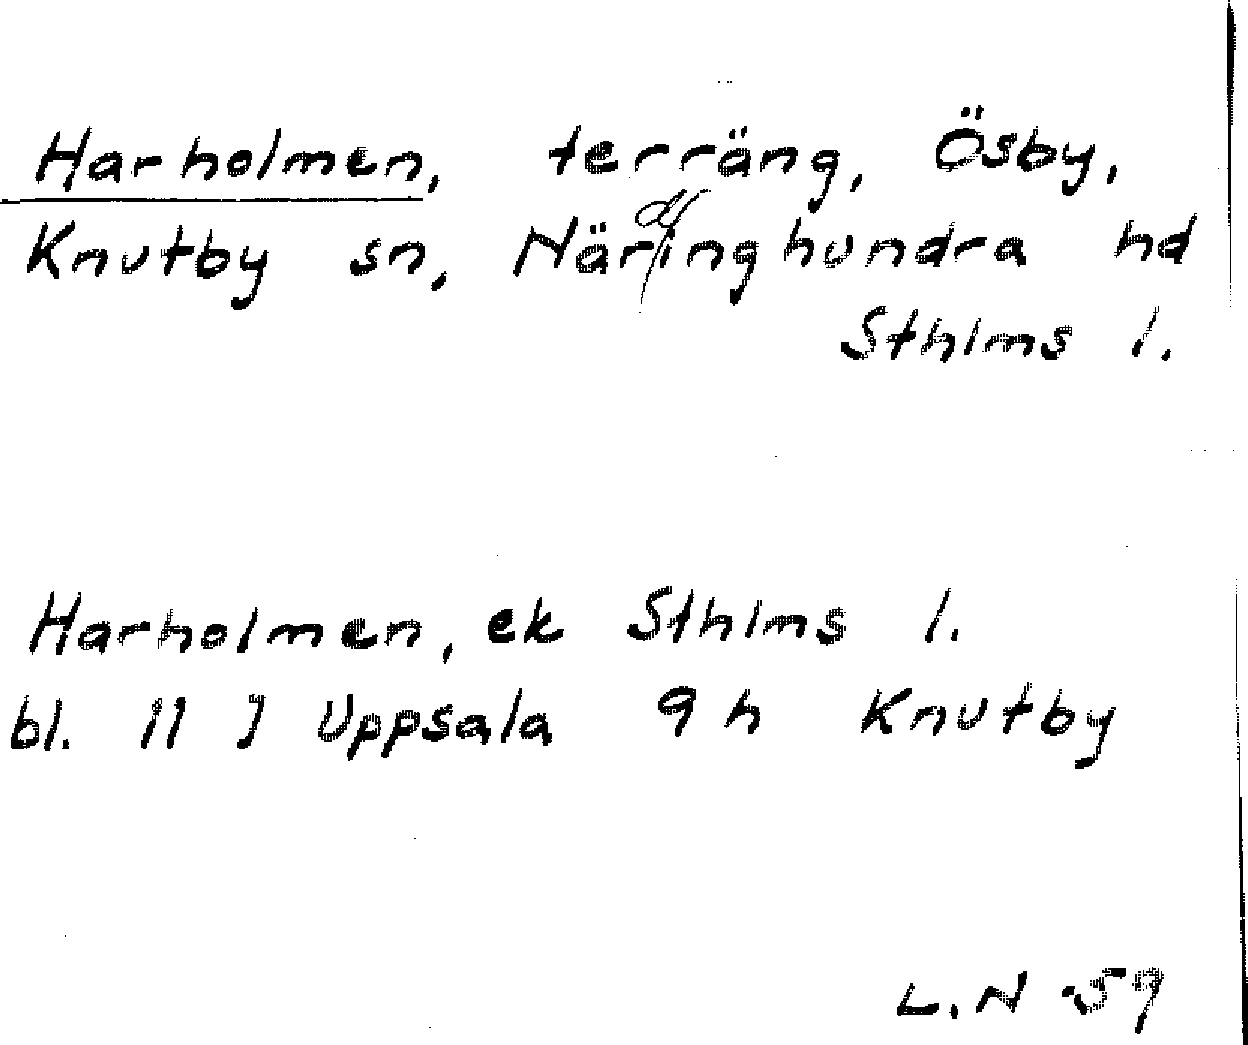 Harholmen, terräng, Ösby,
Knutby sn, Närdinghundra hd
Sthlms l.
Harholmen, ek Sthlms l.
bl. 11 J Uppsala 9 h Knutby
L.N -59